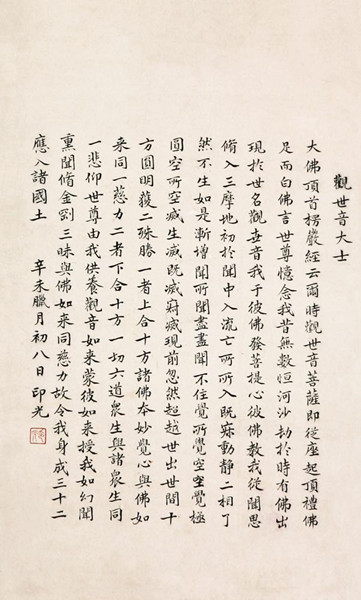 觀世音大士
大佛頂首楞嚴經云爾時觀世音菩薩即從座起頂禮佛
足而白佛言世尊憶念我昔無數恒河沙劫於時有佛出
現於世名觀世音我于彼佛發菩提心彼佛教我從聞思
脩入三摩地初於聞中入流亡所所入既寂動靜二相了
然不生如是漸增聞所聞盡盡聞不住覺所覺空空覺極
圓空所空滅生滅既滅寂滅現前忽然超越世出世間十
方圓明獲二殊勝一者上合十方諸佛本妙覺心與佛如
來同一慈力二者下合十方一切六道眾生與諸眾生同
一悲仰世尊由我供養觀音如來蒙彼如來授我如幻聞
熏聞脩金剛三昧與佛如來同慈力故令我身成三十二
應入諸國土 辛未臘月初八日印光